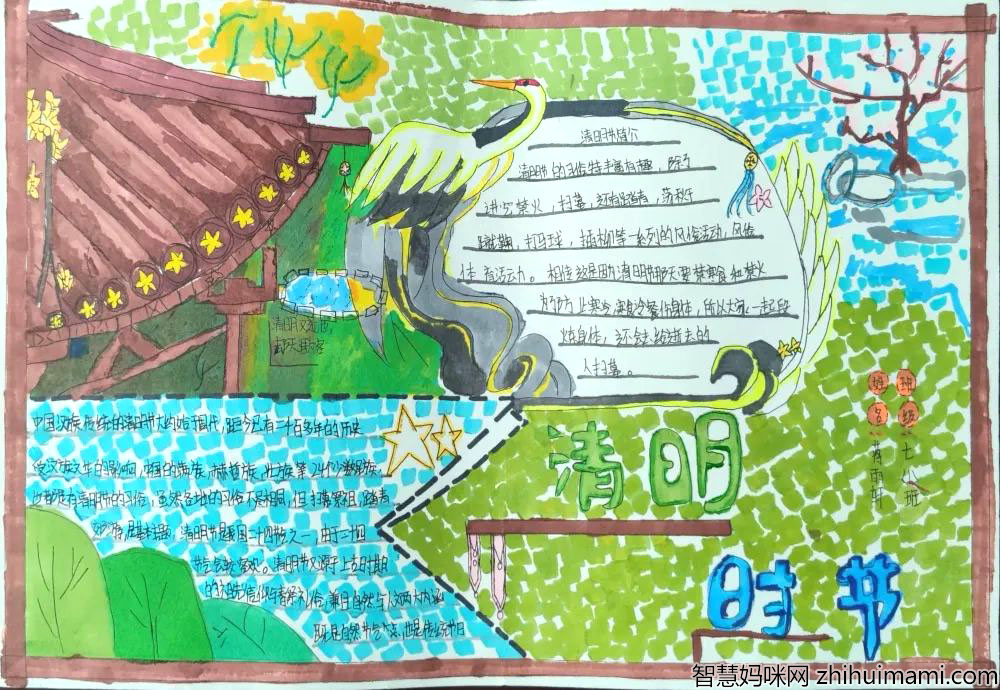 清明节简介
清明节的习俗特丰富有趣，除了
讲究禁火，扫墓，还有踏青，荡秋千
蹴鞠，打马球，插柳等一系列的风俗活动，风俗
体育活动。相传这是因为清明节那天要禁寒食和禁火
为防止寒食冷餐伤身体，所以大家一起段
炼身体，
人扫墓。
中国汉族传统的清明节大约始于周代，距今已有二千五百多年的历史
受汉族文化的影响，中国的满族、赫哲族、壮族等24个少数民族，
也都有清明节的习俗，虽然各地的习俗不尽相同，但扫墓祭祖、踏青
是基本主题。清明节是
清明节又源于上古时期
的祖先信仰与春祭礼俗，兼具自然与人文两大内涵
既是自然节气点，也是传统节日
清明
时节
班级：七八班
智慧妈咪网 zhihuimami.com